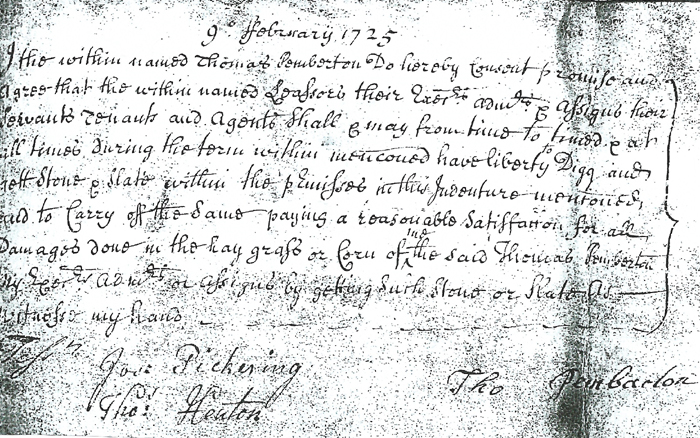 9o. February 1725
I the within named Thomas Pemberton Do hereby Consent promise and
Agree that the within named Leassors their Exers. Admrs. & Assigns their
Servants Tenants and Agents Shall & may from time to time & at
all times During the term within menconed have liberty to Digg and
gett Stone & Slate within the prmisses in this Indenture mentoned
and to Carry off the Same paying a reasonable Satisfation for all
Damages done in the hay grass or Corn of me the said Thomas Pemberton
my Exers. Admrs. or Assigns by getting Such Stone or Slate As
witness my hand
Jos: Pickering
Tho: Pemberton
Thos: Heaton